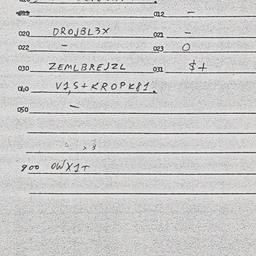 012 -
020 DROJBL3X 021 -
022 - 023 O
030 ZEMLBREJZL 031 $+
040 V1,S+KROPK81.
050 -
900 OWX1T